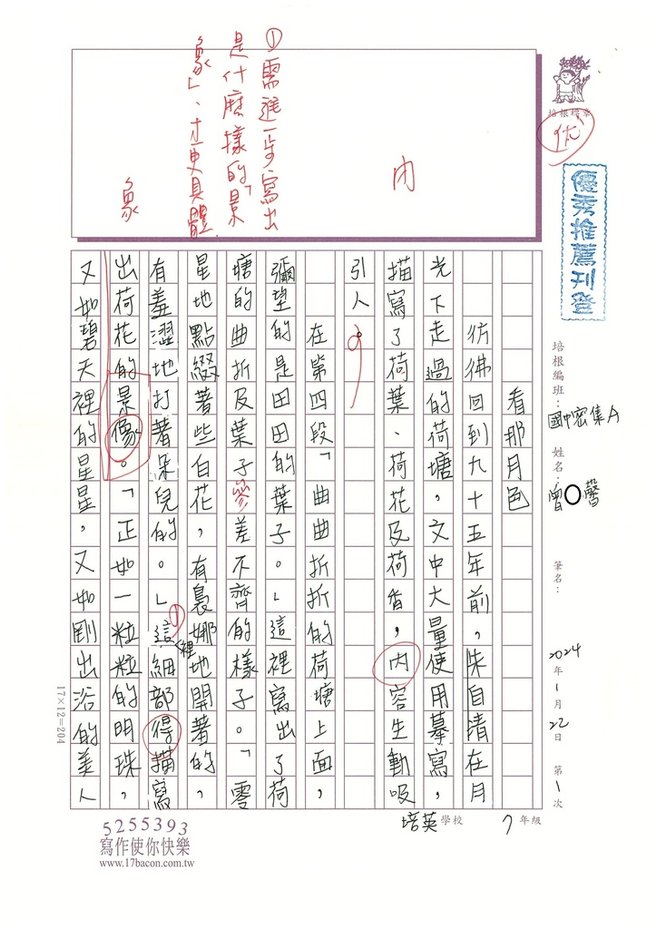 培根培芽
優
優秀推薦刊登
培根編班：國中密集A
姓名：曾○馨
筆名：
2024年1月22日 第1次
培英學校 7年級
①需進一步寫出
是什麼樣的「景
象」、才更具體
內
象
看那月色
彷彿回到九十五年前，朱自清在月
光下走過的荷塘，文中大量使用摹寫，
描寫了荷葉、荷花及荷香，內容生動吸
引人。
在第四段「曲曲折折的荷塘上面，
彌望的是田田的葉子。」這裡寫出了荷
塘的曲折及葉子參差不齊的樣子。「零
星地點綴著些白花，有裊娜地開著的，
有羞澀地打著朵兒的。」①這裡細部得描寫
出荷花的景像。「正如一粒粒的明珠，
又如碧天裡的星星，又如剛出浴的美人
17×12=204
5255393
寫作使你快樂
www.17bacon.com.tw